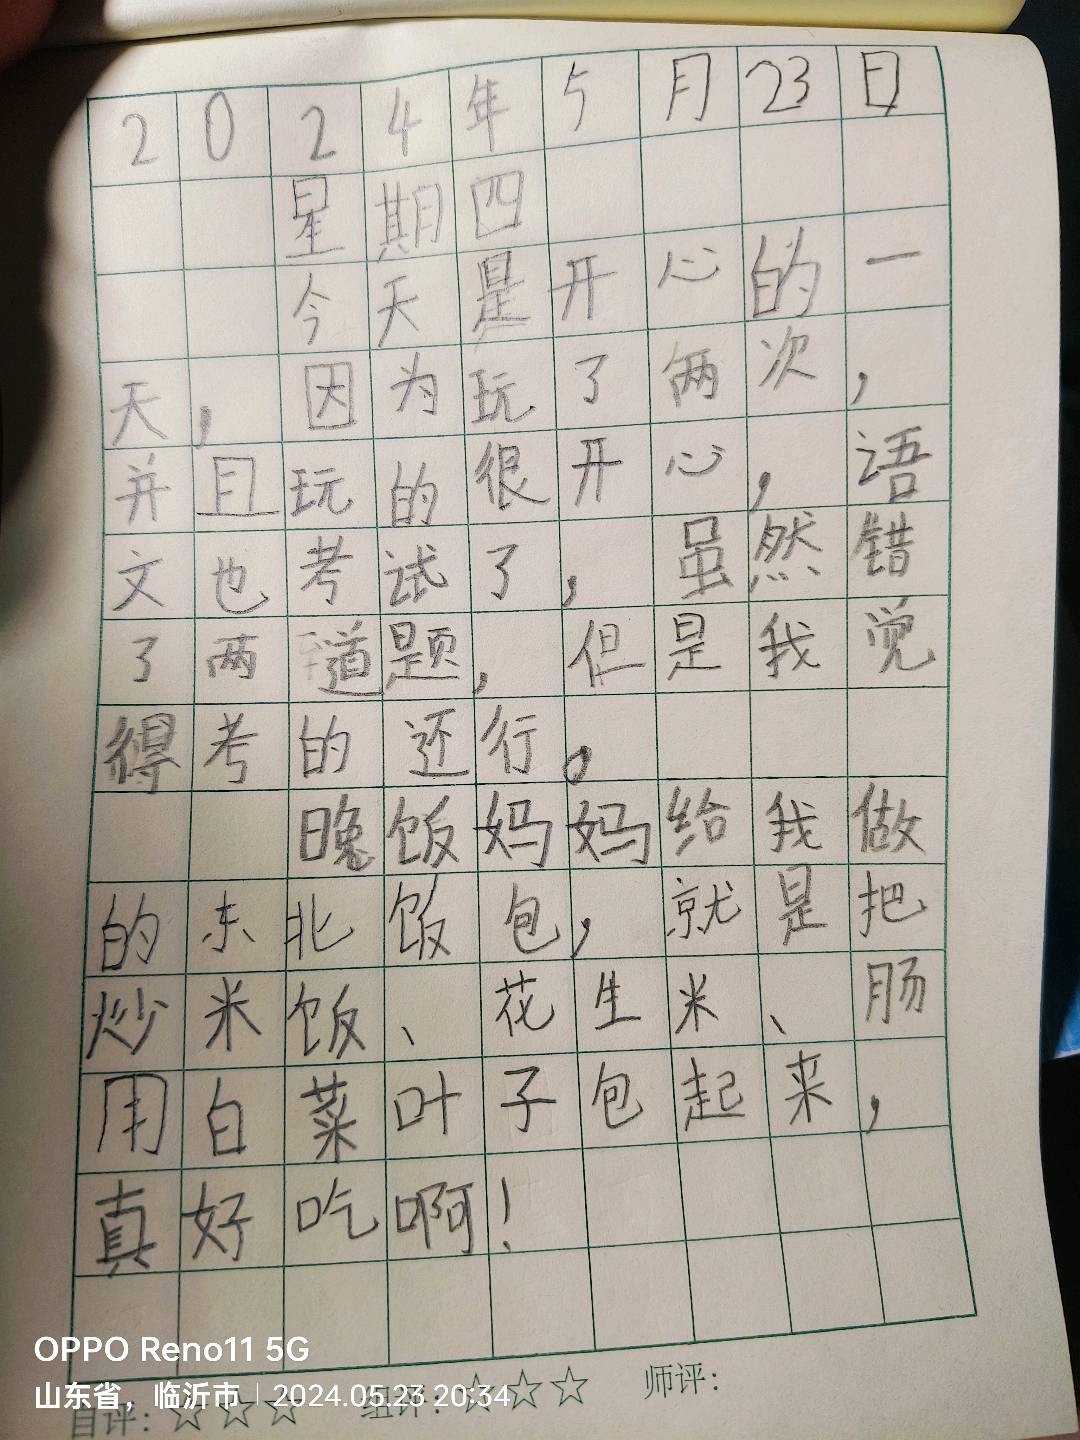 2024年5月23日
星期四
今天是开心的一
天，因为玩了两次，
并且玩的很开心，语
文也考试了，虽然错
了两道题，但是我觉
得考的还行。
晚饭妈妈给我做
的东北饭包，就是把
炒米饭、花生米、肠
用白菜叶子包起来，
真好吃啊！
OPPO Reno11 5G
山东省，临沂市 | 2024.05.23 20:34
自评：☆☆☆ 组评：☆☆☆ 师评：